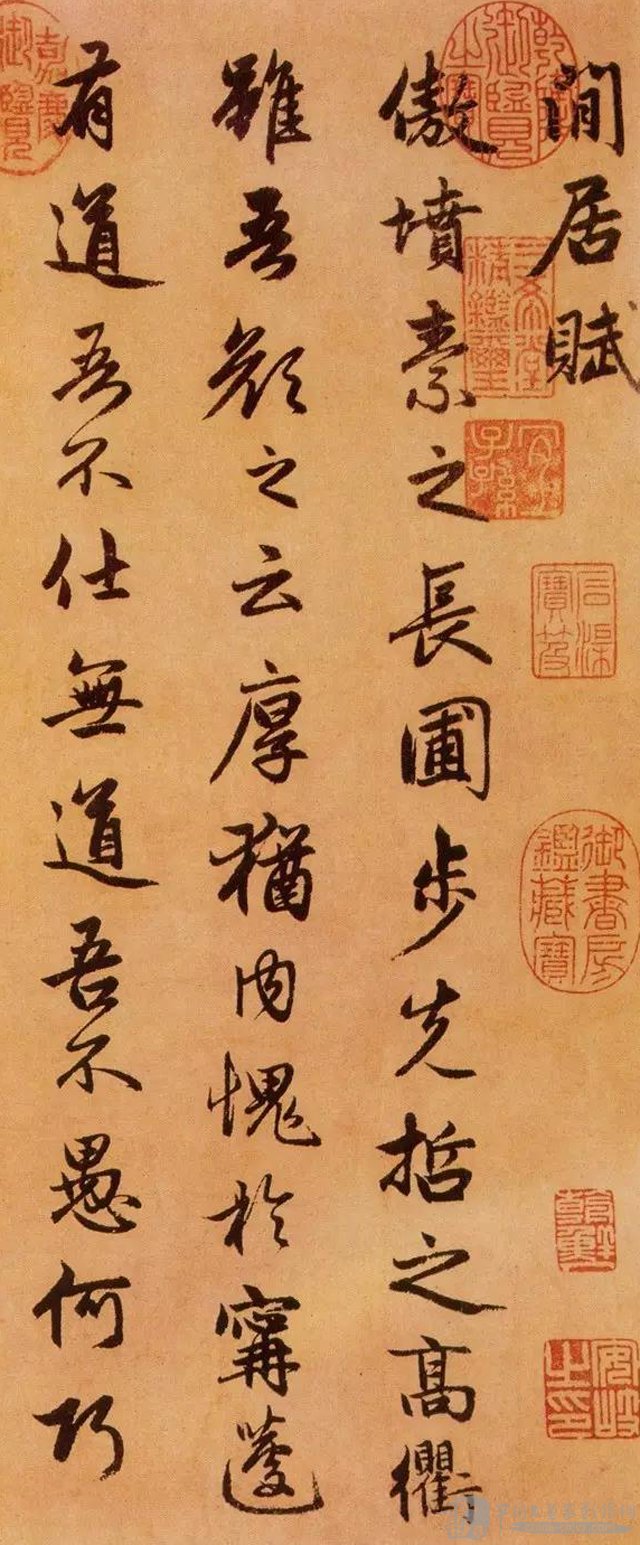 閒居賦
傲墳素之長圃步先哲之高衢
雖吾顏之云厚猶內愧於甯蘧
有道吾不仕無道吾不愚何巧
乾隆御覽之寶
三希堂精鑑璽
宜子孫
石渠寶笈
御書房鑑藏寶
安岐之印
嘉慶御覽